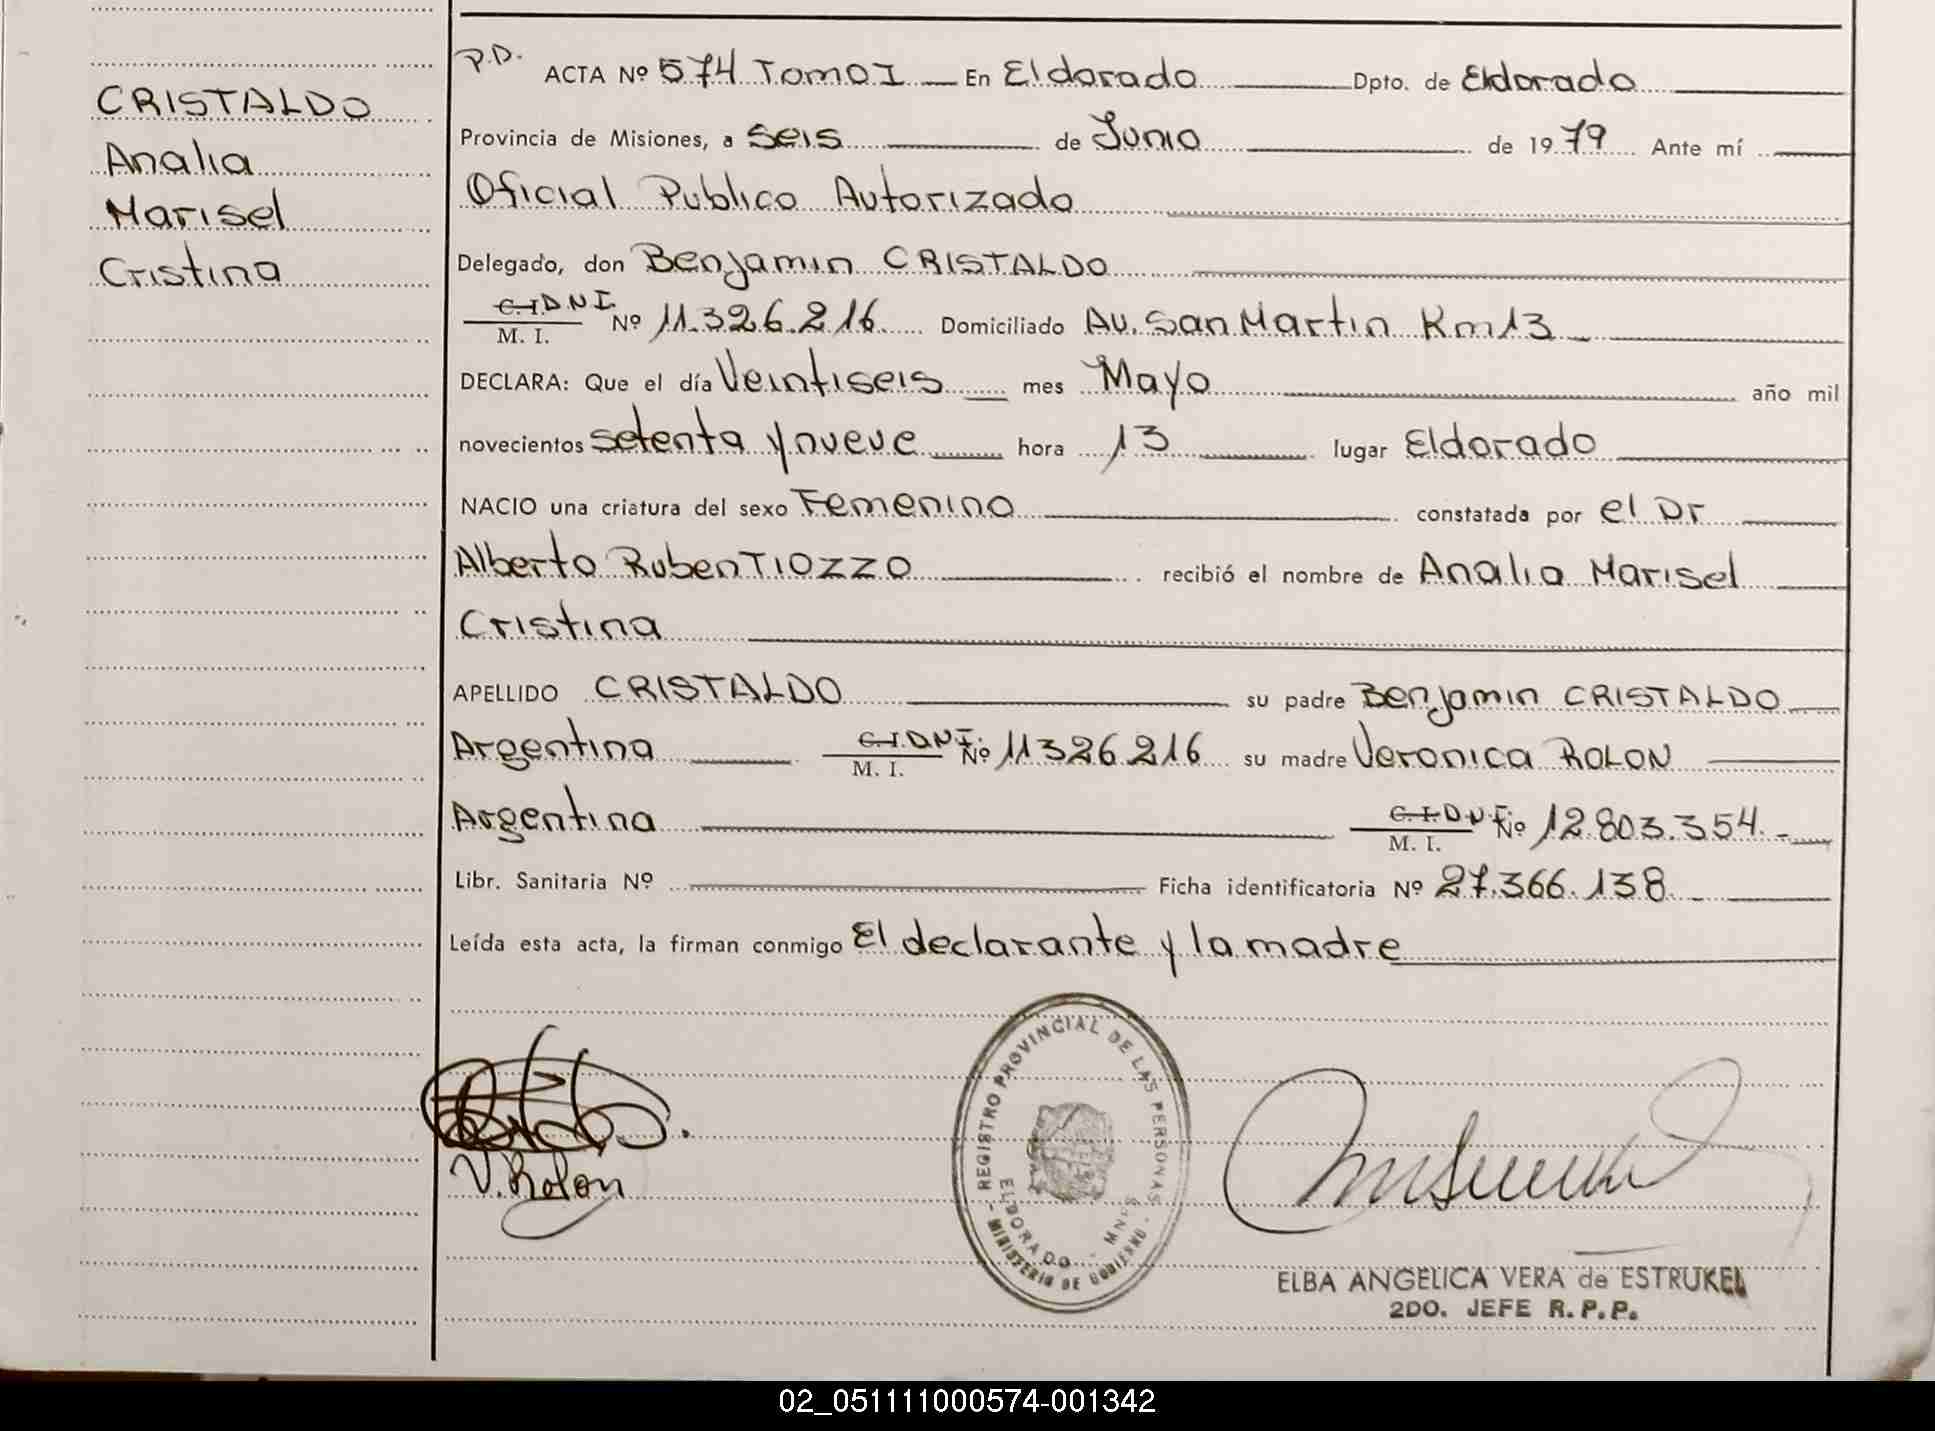 CRISTALDO
Analia
Marisel
Cristina
P.D. ACTA Nº 574 Tomo I En Eldorado Dpto. de Eldorado
Provincia de Misiones, a Seis de Junio de 1979 Ante mí
Oficial Publico Autorizado
Delegado, don Benjamin CRISTALDO
C.I. D.N.I. M. I. Nº 11.326.216 Domiciliado Av. San Martin Km 13
DECLARA: Que el día Veintiseis mes Mayo año mil
novecientos setenta y nueve hora 13 lugar Eldorado
NACIO una criatura del sexo Femenino constatada por el Dr
Alberto Ruben TIOZZO recibió el nombre de Analia Marisel
Cristina
APELLIDO CRISTALDO su padre Benjamin CRISTALDO
Argentina C.I. D.N.I. M. I. Nº 11.326.216 su madre Veronica ROLON
Argentina C.I. D.N.I. M. I. Nº 12.803.354.-
Libr. Sanitaria Nº Ficha identificatoria Nº 27.366.138
Leída esta acta, la firman conmigo El declarante y la madre
V. Rolon
REGISTRO PROVINCIAL DE LAS PERSONAS
ELDORADO - MNES
- MINISTERIO DE GOBIERNO -
ELBA ANGELICA VERA de ESTRUKEL
2DO. JEFE R.P.P.
02_051111000574-001342